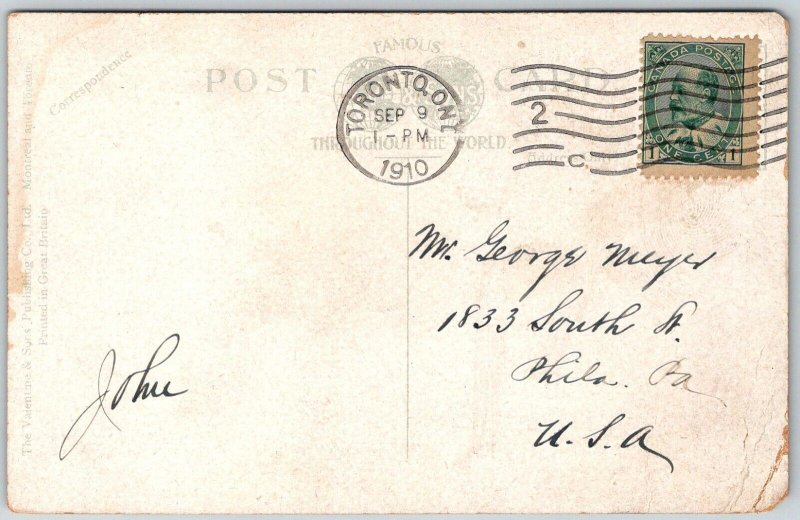 FAMOUS
POST CARD
THROUGHOUT THE WORLD.
Correspondence
TORONTO, ONT.
SEP 9
1 - PM
1910
2
C
CANADA POSTAGE
1 ONE CENT 1
The Valentine & Sons Publishing Co., Ltd. Montreal and Toronto
Printed in Great Britain
Mr. George Meyer
1833 South St.
Phila. Pa
U.S.A
John